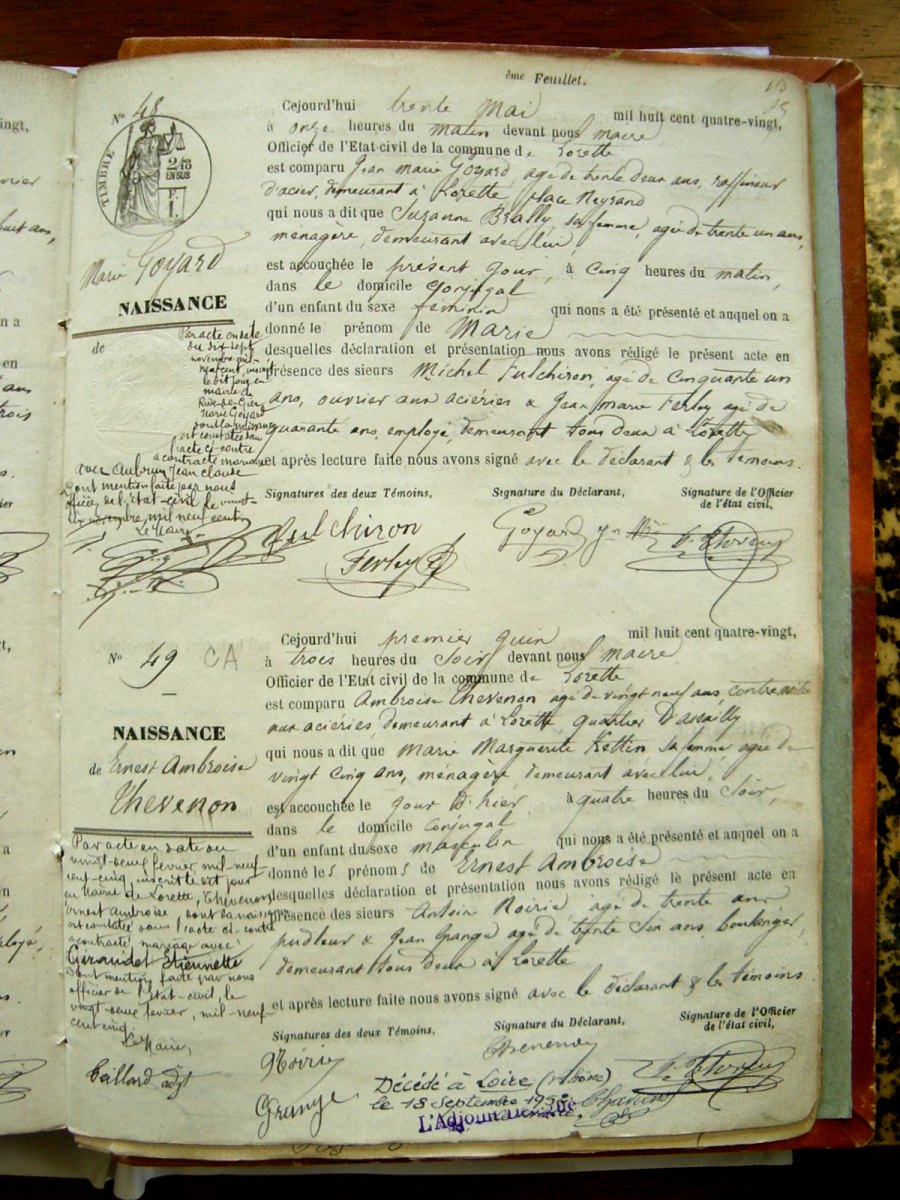 ème Feuillet.
Nº 48
TIMBRE
2/10
EN SUS
Marie Goyard
NAISSANCE
de
Par acte en date
du dix-sept
novembre
neuf cent, inscrit
le dit jour en
mairie de
Rive-de-Gier
Marie Goyard
dont la naissance
est constatée dans
l'acte ci-contre
a contracté mariage
avec Aubrun Jean Claude
Dont mention faite par nous
officier de l'Etat-civil le vingt-
novembre mil neuf cent
Le Maire
Cejourd'hui trente Mai mil huit cent quatre-vingt,
à onze heures du matin devant nous maire
Officier de l'Etat civil de la commune de Lorette
est comparu Jean Marie Goyard, agé de trente deux ans, raffineur
d'acier, demeurant à Lorette, place Neyrand
qui nous a dit que Suzanne Brally, sa femme, agée de trente un ans,
menagère, demeurant avec lui
est accouchée le présent jour, à cinq heures du matin,
dans le domicile conjugal
d'un enfant du sexe feminin qui nous a été présenté et auquel on a
donné le prénom de Marie
desquelles déclaration et présentation nous avons rédigé le présent acte en
présence des sieurs Michel Fulchiron, agé de cinquante un
ans, ouvrier aux aciéries & Jean Marie Ferley agé de
quarante ans, employé, demeurant tous deux à Lorette
et après lecture faite nous avons signé avec le déclarant & les témoins.
Signatures des deux Témoins, Signature du Déclarant, Signature de l'Officier
de l'état civil,
Fulchiron Goyard
Ferley
Nº 49 CA
NAISSANCE
de Ernest Ambroise
Thevenon
Par acte en date du
vingt-deux fevrier mil-neuf-
cent-cinq, inscrit le dit jour
en mairie de Lorette, Thevenon
Ernest Ambroise, dont la naissance
est constatée sous l'acte ci-contre
a contracté mariage avec
Giraudet Etiennette
Dont mention faite par nous
officier de l'Etat-civil, le
vingt-deux fevrier, mil-neuf-
cent-cinq.
Le Maire,
Cejourd'hui premier Juin mil huit cent quatre-vingt,
à trois heures du Soir devant nous maire
Officier de l'Etat civil de la commune de Lorette
est comparu Ambroise Thevenon agé de vingt neuf ans, contremaitre
aux aciéries, demeurant à Lorette, quartier D'assailly
qui nous a dit que Marie Marguerite Kettin sa femme agée de
vingt cinq ans, ménagère demeurant avec lui,
est accouchée le jour d'hier, à quatre heures du Soir,
dans le domicile conjugal
d'un enfant du sexe masculin qui nous a été présenté et auquel on a
donné les prénoms de Ernest Ambroise
desquelles déclaration et présentation nous avons rédigé le présent acte en
présence des sieurs Antoine Noirie agé de trente ans
pudleur & Jean Grange agé de trente six ans boulanger
demeurant tous deux à Lorette
et après lecture faite nous avons signé avec le déclarant & les témoins
Signatures des deux Témoins, Signature du Déclarant, Signature de l'Officier
de l'état civil,
Noirie Thevenon
Grange
Décédé à Loire (Rhône)
le 18 Septembre
L'Adjoint Délégué